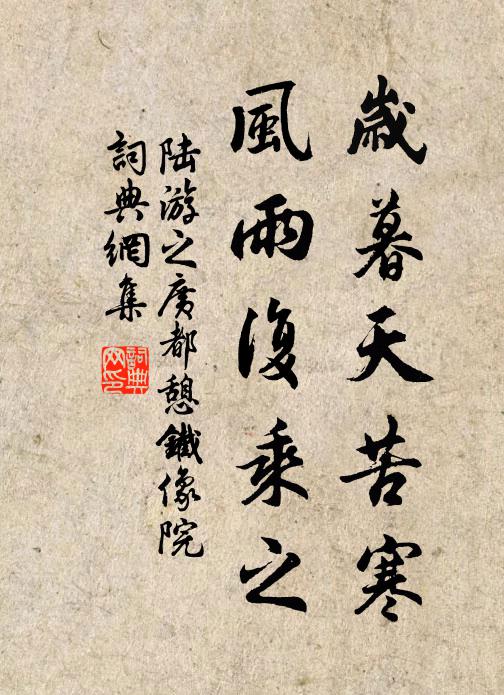 歲暮天苦寒
風雨復乘之
陸游之廣都憩鐵像院
詞典網集
詞典網印